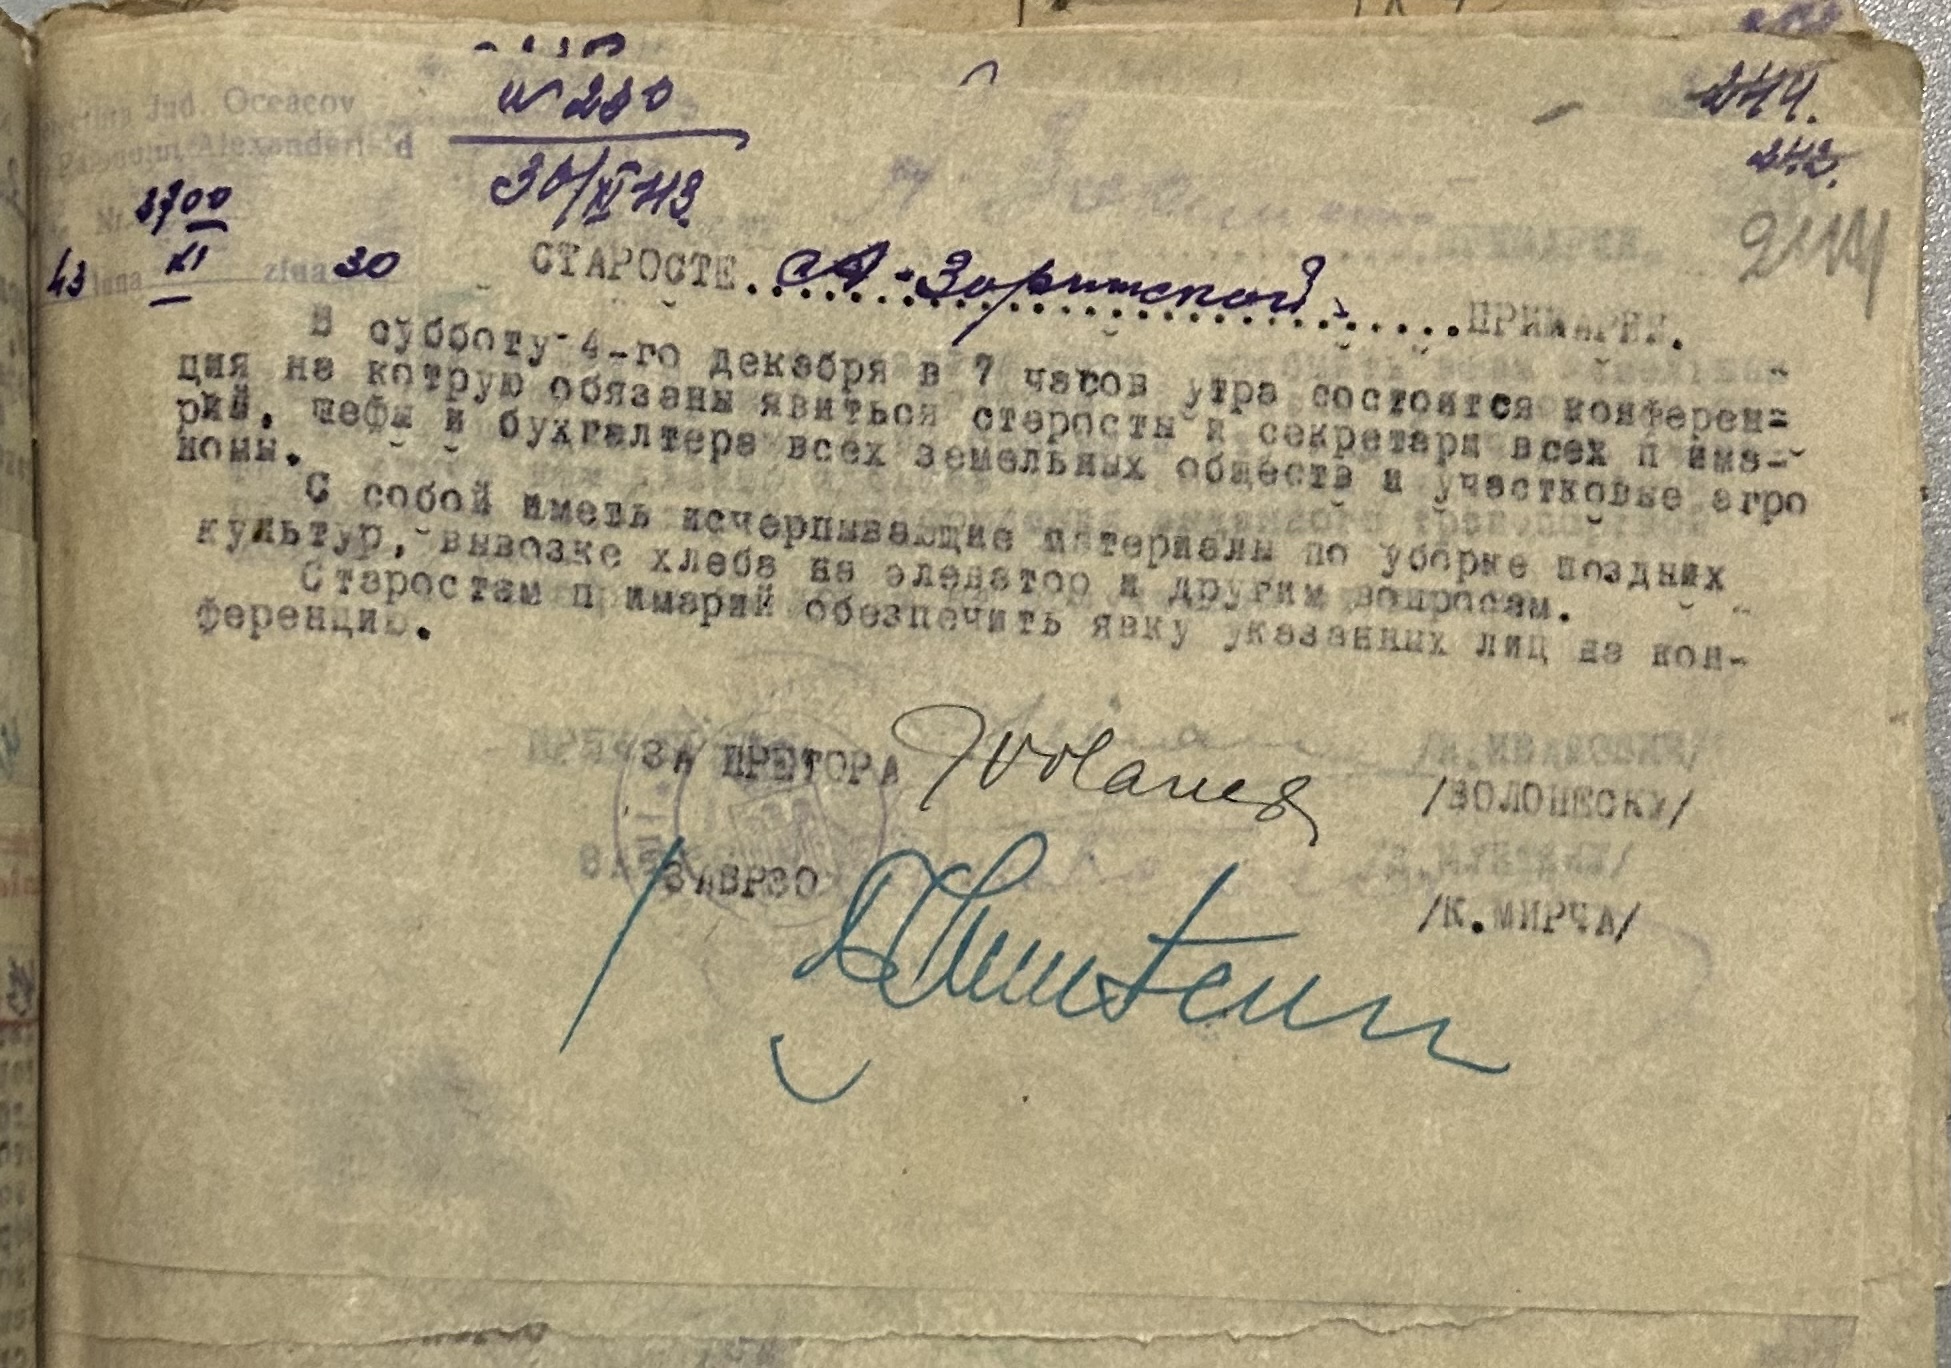 Jud. Oceacov
№ 230
30/XI 43.
244.
243.
Nr. 3700
43 luna XI ziua 30
244
СТАРОСТЕ ПРИМАРИИ.
В субботу 4-го декабря в 7 часов утра состоится конферен=
ция на котрую обязаны явиться старосты и секретари всех п има-
рий, шефы и бухгалтера всех земельных обществ и участковые агро
номы.
С собой иметь исчерпывающие материалы по уборке поздних
культур, вывозке хлеба на элеватор и другим вопросам.
Старостам п имарий обезпечить явку указанных лиц на кон-
ференцию.
ЗА ПРЕТОРА
/ВОЛОНЕСКУ/
ЗАВРЗО
/К.МИРЧА/